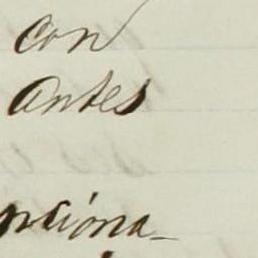 con
antes
nciona-